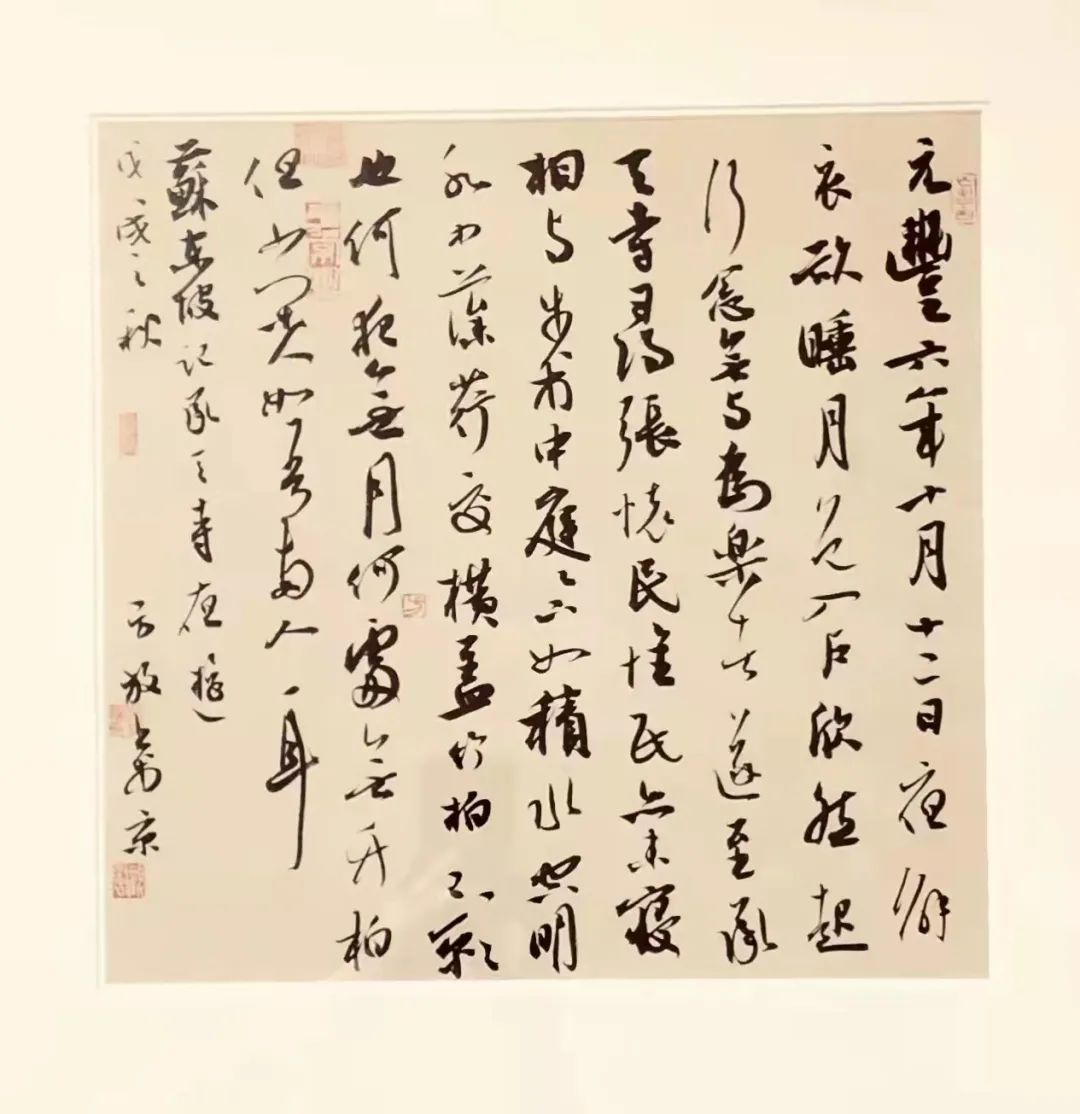 元豐六年十月十二日夜解
衣欲睡月色入戶欣然起
行念無與為樂者遂至承
天寺尋張懷民懷民亦未寢
相與步於中庭庭下如積水空明
水中藻荇交橫蓋竹柏之影
也何夜無月何處無竹柏
但少閑人如吾兩人耳
蘇東坡記承天寺夜遊
戊戌之秋 方放